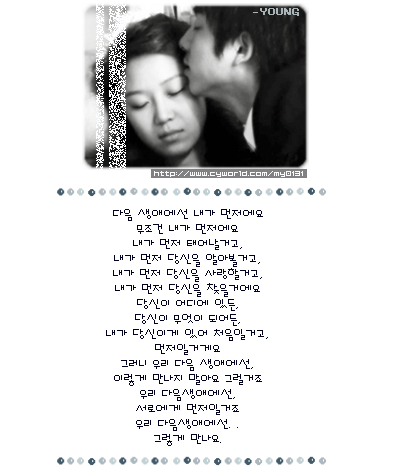 -YOUNG
http://www.cyworld.com/my0131
다음 생애에선 내가 먼저에요
무조건 내가 먼저에요
내가 먼저 태어날거고,
내가 먼저 당신을 알아볼거고,
내가 먼저 당신을 사랑할거고,
내가 먼저 당신을 찾을거에요
당신이 어디에 있든,
당신이 무엇이 되어든,
내가 당신에게 있어 처음일거고,
먼저일거게요
그러니 우리 다음 생애에선,
이렇게 만나지 말아요 그럴거죠
우리 다음생애에선,
서로에게 먼저일거죠
우리 다음생애에선. .
그렇게 만나요.